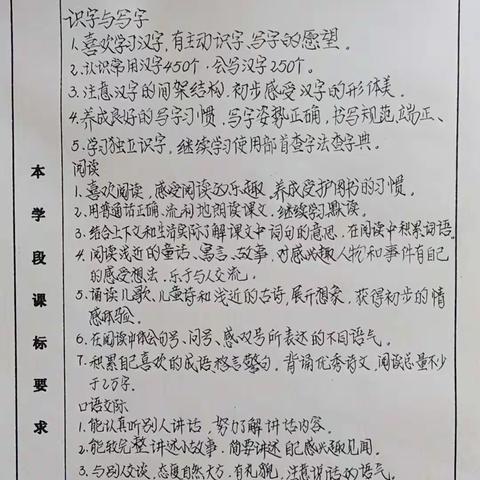 本学段课标要求
识字与写字
1.喜欢学习汉字,有主动识字、写字的愿望。
2.认识常用汉字450个,会写汉字250个。
3.注意汉字的间架结构,初步感受汉字的形体美。
4.养成良好的写字习惯,写字姿势正确,书写规范、端正、
5.学习独立识字,继续学习使用部首查字法查字典。
阅读
1.喜欢阅读,感受阅读的乐趣,养成爱护图书的习惯。
2.用普通话正确、流利地朗读课文,继续学习默读。
3.结合上下文和生活实际了解课文中词句的意思,在阅读中积累词语。
4.阅读浅近的童话、寓言、故事,对感兴趣人物和事件有自己
的感受想法,乐于与人交流。
5.诵读儿歌、儿童诗和浅近的古诗,展开想象,获得初步的情
感体验。
6.在阅读中体会句号、问号、感叹号所表达的不同语气。
7.积累自己喜欢的成语格言警句,背诵优秀诗文,阅读总量不少
于2万字。
口语交际
1.能认真听别人讲话,努力了解讲话内容。
2.能较完整讲述小故事,简要讲述自己感兴趣见闻。
3.与别人交谈,态度自然大方,有礼貌,注意说话的语气。